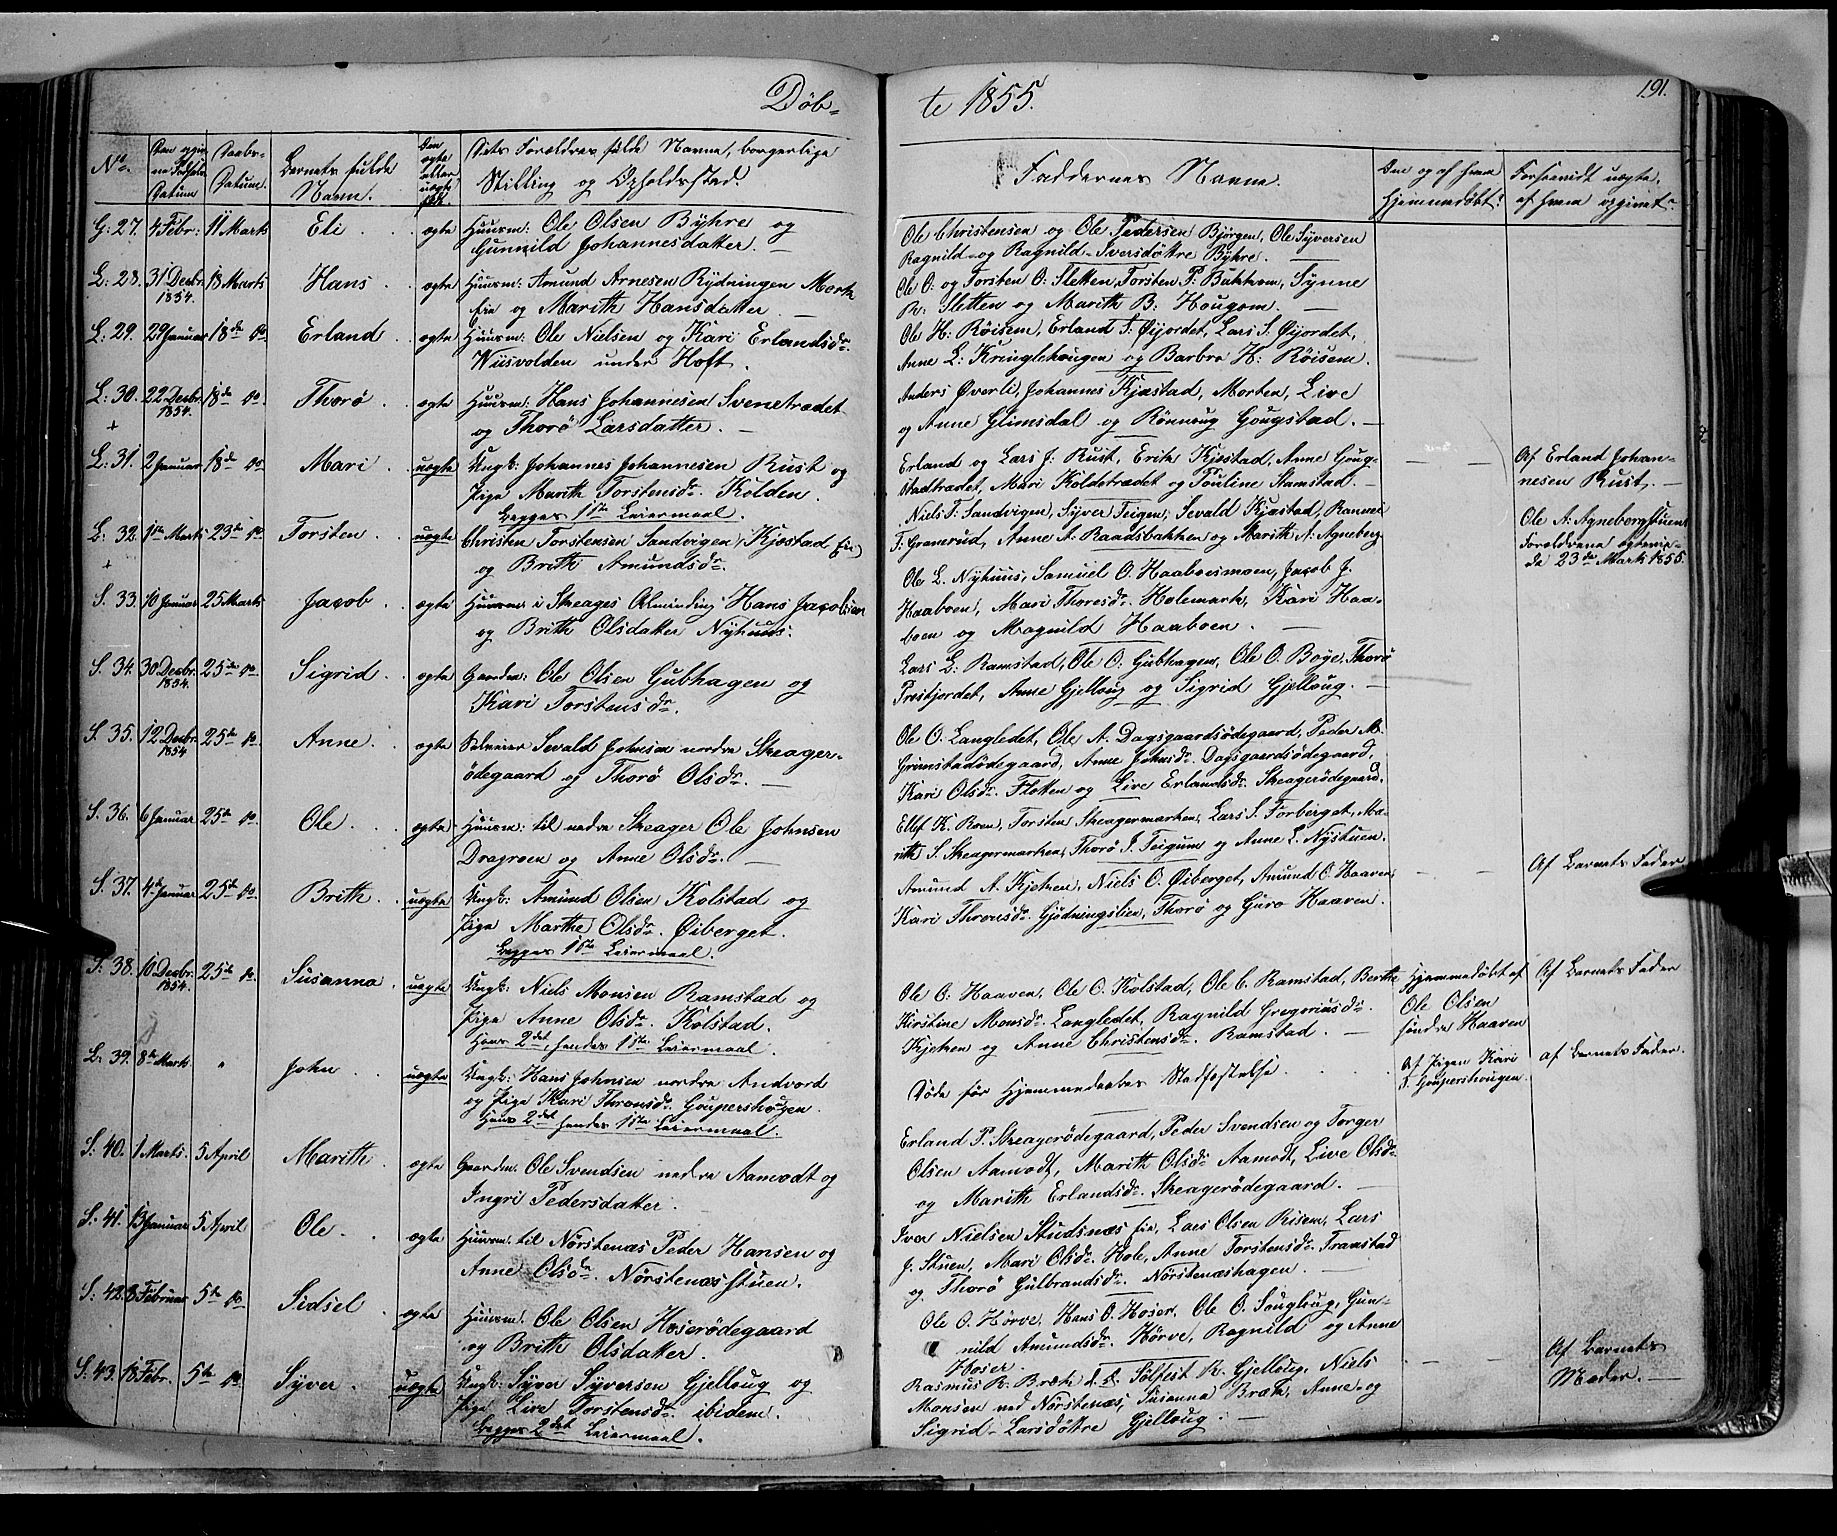 Döb-
te 1855.
191.
No.
Den opgiv-
ne Fødsels-
Datum
Daabs-
Datum.
Barnets fulde
Navn.
Om
ægte
eller
uægte
født.
Dets Forældres fulde Navne, borgerlige
Stilling og Opholdssted.
Faddernes Navne.
Om og af hvem
hjemmedøbt?
Forsaavidt uægte,
af hvem opgivet?
G: 27. 4 Febr: 11 Marts Eli ægte Huusm: Ole Olsen Byhre og
Gunnild Johannesdatter. —
Ole Christensen og Ole Pedersen Bjørgen, Ole Syversen
Ragnild og Ragnild Iversdøttre Byhre. —
L: 28. 31 Decbr. 1854. 18 Marts Hans ægte Huusm: Amund Arnesen Rydningen Mork
eie og Marith Hansdatter. —
Ole O: og Torsten O: Sletten, Torsten P. Bakkem, Synne
R: Sletten og Marith B: Hougom. —
L: 29. 29 Januar 18de do. Erland ægte Huusm: Ole Nielsen og Kari Erlandsdr.
Wiisvolden under Hoft.
Ole H: Röisem, Erland S. Øijordet, Lars S. Øijordet,
Anne L: Kringlehougen og Barbro H: Röisem.
L: 30. 22 Decbr. 1854. 18de do. Thorø ægte Huusm: Hans Johannesen Svenetrædet
og Thorø Larsdatter. —
Anders Øverli, Johannes Kjæstad, Morten, Live
og Anne Glimsdal og Rönnoug Gougstad. —
L: 31. 2 Januar 18de do. Mari uægte Ungk: Johannes Johannesen Rust og
Pige Marith Torstensdr. Kolden.
Begges 1ste Leiermaal.
Erland og Lars J. Rust, Erik Kjæstad, Anne Goug-
stadtrædet, Mari Koldetrædet og Pouline Stamstad. —
Af Erland Johan-
nesen Rust. —
L: 32. 1ste Marts 23de do. Torsten uægte Christen Torstensen Sandvigen (Kjæstad eie)
og Brith Amundsdr.
Niels T. Sandvigen, Syver Teigen, Sevald Kjæstad, Rannei
T: Granerud, Anne A. Raadsbakken og Marith A. Agneberg
Ole A: Agnebergstuen,
Forældrene ægtevie-
de 23de Marts 1855.
S. 33. 10 Januar 25 Marts Jacob ægte Huusm: i Skeages Alminding Hans Jacobsen
og Brith Olsdatter Nyhuus.
Ole L. Nyhuus, Samuel O. Haaboesmoen, Jacob J.
Haaboen, Mari Thoresdr. Holemark, Kari Haa-
boen og Magnild Haaboen. —
S. 34. 30 Decbr. 1854. 25de do. Sigrid ægte Gaardm: Ole Olsen Gubhagen og
Kari Torstensdr.
Lars L: Ramstad, Ole O. Gubhagen, Ole O. Boye, Thorø
Prestjordet, Anne Gjelloug og Sigrid Gjelloug. —
S. 35. 12 Decbr. 1854 25de do. Anne ægte Selveier Sevald Johnsen nordre Skeager-
ödegaard og Thorø Olsdr. —
Ole O. Langledet, Ole A. Dagsgaardsödegaard, Peder M.
Grimstadödegaard, Anne Johnsdr. Dagsgaardsödegaard,
Kari Olsdr. Fløtten og Live Erlandsdr. Skeagerödegaard.
S. 36. 6 Januar 25de do. Ole ægte Huusm: til nedre Skeager Ole Johnsen
Dragroen og Anne Olsdr. —
Ellef K. Roen, Torsten Skeagermarken, Lars S. Forberget, Ma-
rith S. Skeagermarken, Thorø J. Teigum og Anne L. Nystuen.
S. 37. 4de Januar 25de do. Brith uægte Ungk: Amund Olsen Kolstad og
Pige Marthe Olsdr. Øiberget.
Begges 1ste Leiermaal.
Amund A. Kjerken, Niels O. Øiberget, Amund O. Haaven,
Kari Thronsdr. Gjödningslien, Thorø og Guro Haaven.
Af Barnets Fader
S. 38. 10 Decbr. 1854. 25de do. Susanna uægte Ungk: Niels Monsen Ramstad og
Pige Anne Olsdr. Kolstad.
Hans 2det, hendes 1ste Leiermaal.
Ole O. Haaven, Ole O. Kolstad, Ole C. Ramstad, Berthe
Kirstine Monsdr. Langledet, Ragnild Gregoriusdr.
Kjerken og Anne Christensdr. Ramstad. —
Hjemmedöbt af
Ole Olsen
søndre Haaven
Af Barnets Fader
L: 39. 8de Marts " John uægte Ungk: Hans Johnsen nordre Andvord
og Pige Kari Thronsdr. Goupershougen.
Hans 2det hendes 1ste Leiermaal.
Døde før Hjemmedaabes Stadfæstelse.
Af Pigen Kari
T. Goupershougen.
Af Barnets Fader.
S. 40. 1 Marts. 5 April Marith ægte Gaardm: Ole Svendsen nedre Aamodt og
Ingri Pedersdatter.
Erland P. Skeagerödegaard, Peder Svendsen og Torger
Olsen Aamodt, Marith Olsdr. Aamodt, Live Olsdr.
og Marith Erlandsdr. Skeagerödegaard. —
S. 41. 13 Januar 5 April Ole ægte Huusm: til Nörstenæs Peder Hansen og
Anne Olsdr. Nörstenæsstuen.
Iver Nielsen Studsnæs eie, Lars Olsen Risem, Lars
J. Stuen, Mari Olsdr. Hole, Anne Torstensdr. Tramstad
og Thorø Gulbrandsdr. Nörstenæshagen. —
S. 42. 8 Februar 5te do Sidsel ægte Huusm: Ole Olsen Hoserödegaard
og Brith Olsdatter.
Ole O. Hörve, Hans O. Hoser, Ole O. Sougloug, Gun-
nild Amundsdr. Hörve, Ragnild og Anne
Hoser.
S. 43. 18 Febr. 5te do. Syver uægte Ungk: Syver Syversen Gjelloug og
Pige Live Torstensdr. ibidem.
Begges 2det Leiermaal.
Rasmus R. Bræk, Sölfest R. Gjelloug, Niels
Monsen ned Nörstenæs, Susanna Bræk, Anne og
Sigrid Larsdöttre Gjelloug. —
Af Barnets
Moder. —